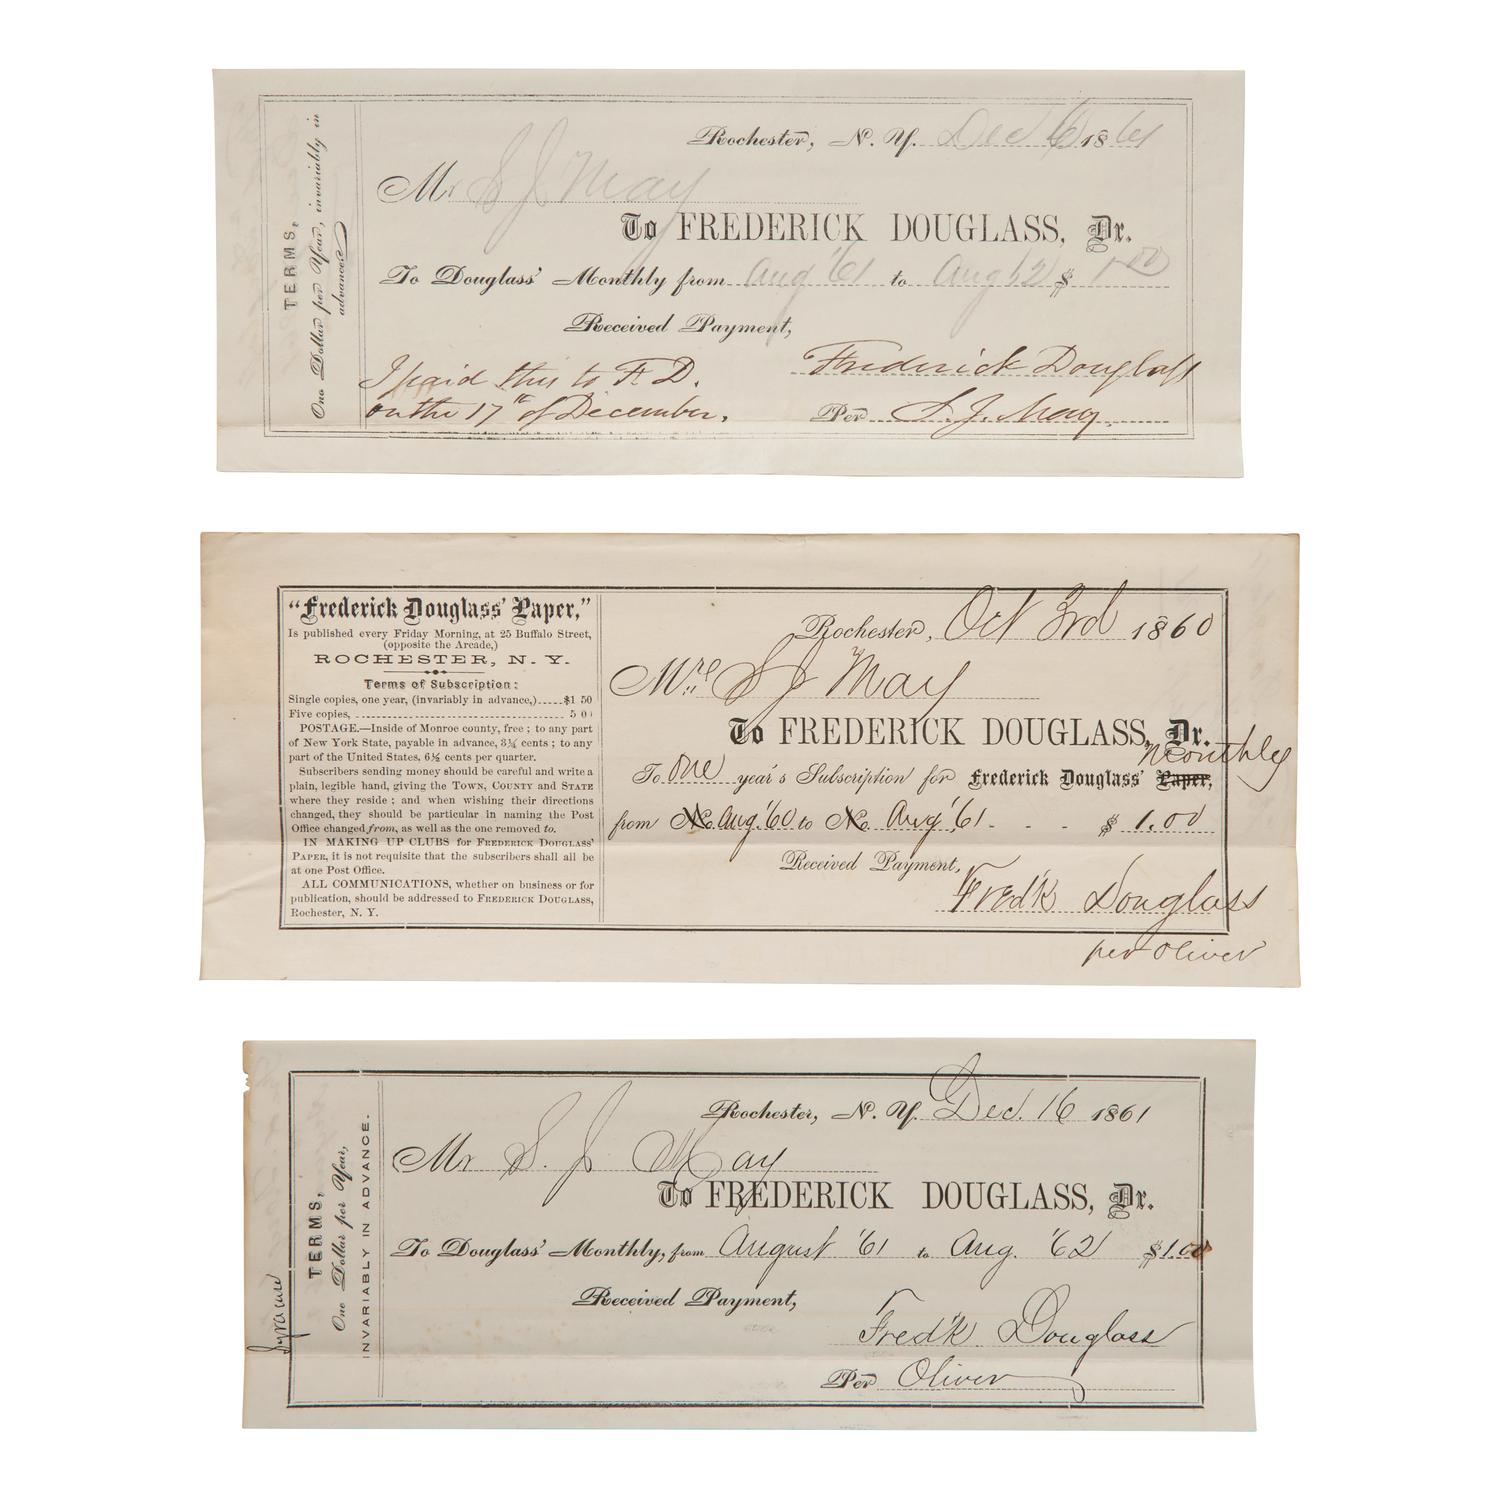 TERMS,
One Dollar per Year, invariably in
advance.
Rochester, N. Y. Dec 6 1861
Mr S J May
To FREDERICK DOUGLASS, Dr.
To Douglass' Monthly from Aug '61 to Aug 62 $ 1 00
Received Payment,
Frederick Douglass
Per S. J. May
I paid this to F. D.
on the 17th of December.
"Frederick Douglass' Paper,"
Is published every Friday Morning, at 25 Buffalo Street,
(opposite the Arcade,)
ROCHESTER, N. Y.
Terms of Subscription:
Single copies, one year, (invariably in advance,) $1 50
Five copies, 5 00
POSTAGE.—Inside of Monroe county, free; to any part
of New York State, payable in advance, 3¼ cents; to any
part of the United States, 6½ cents per quarter.
Subscribers sending money should be careful and write a
plain, legible hand, giving the TOWN, COUNTY and STATE
where they reside; and when wishing their directions
changed, they should be particular in naming the Post
Office changed from, as well as the one removed to.
IN MAKING UP CLUBS for FREDERICK DOUGLASS'
PAPER, it is not requisite that the subscribers shall all be
at one Post Office.
ALL COMMUNICATIONS, whether on business or for
publication, should be addressed to FREDERICK DOUGLASS,
Rochester, N. Y.
Rochester, Oct 3rd 1860
S J May
To FREDERICK DOUGLASS, Dr.
Monthly
To one year's Subscription for Frederick Douglass' Paper,
from No. Aug. '60 to No. Aug '61 - - - $ 1.00
Received Payment,
Fred'k Douglass
per Oliver
Syracuse
TERMS,
One Dollar per Year,
INVARIABLY IN ADVANCE.
Rochester, N. Y. Dec. 16 1861
Mr S. J. May
To FREDERICK DOUGLASS, Dr.
To Douglass' Monthly, from August '61 to Aug. '62 $1.00
Received Payment,
Fred'k Douglass
Per Oliver